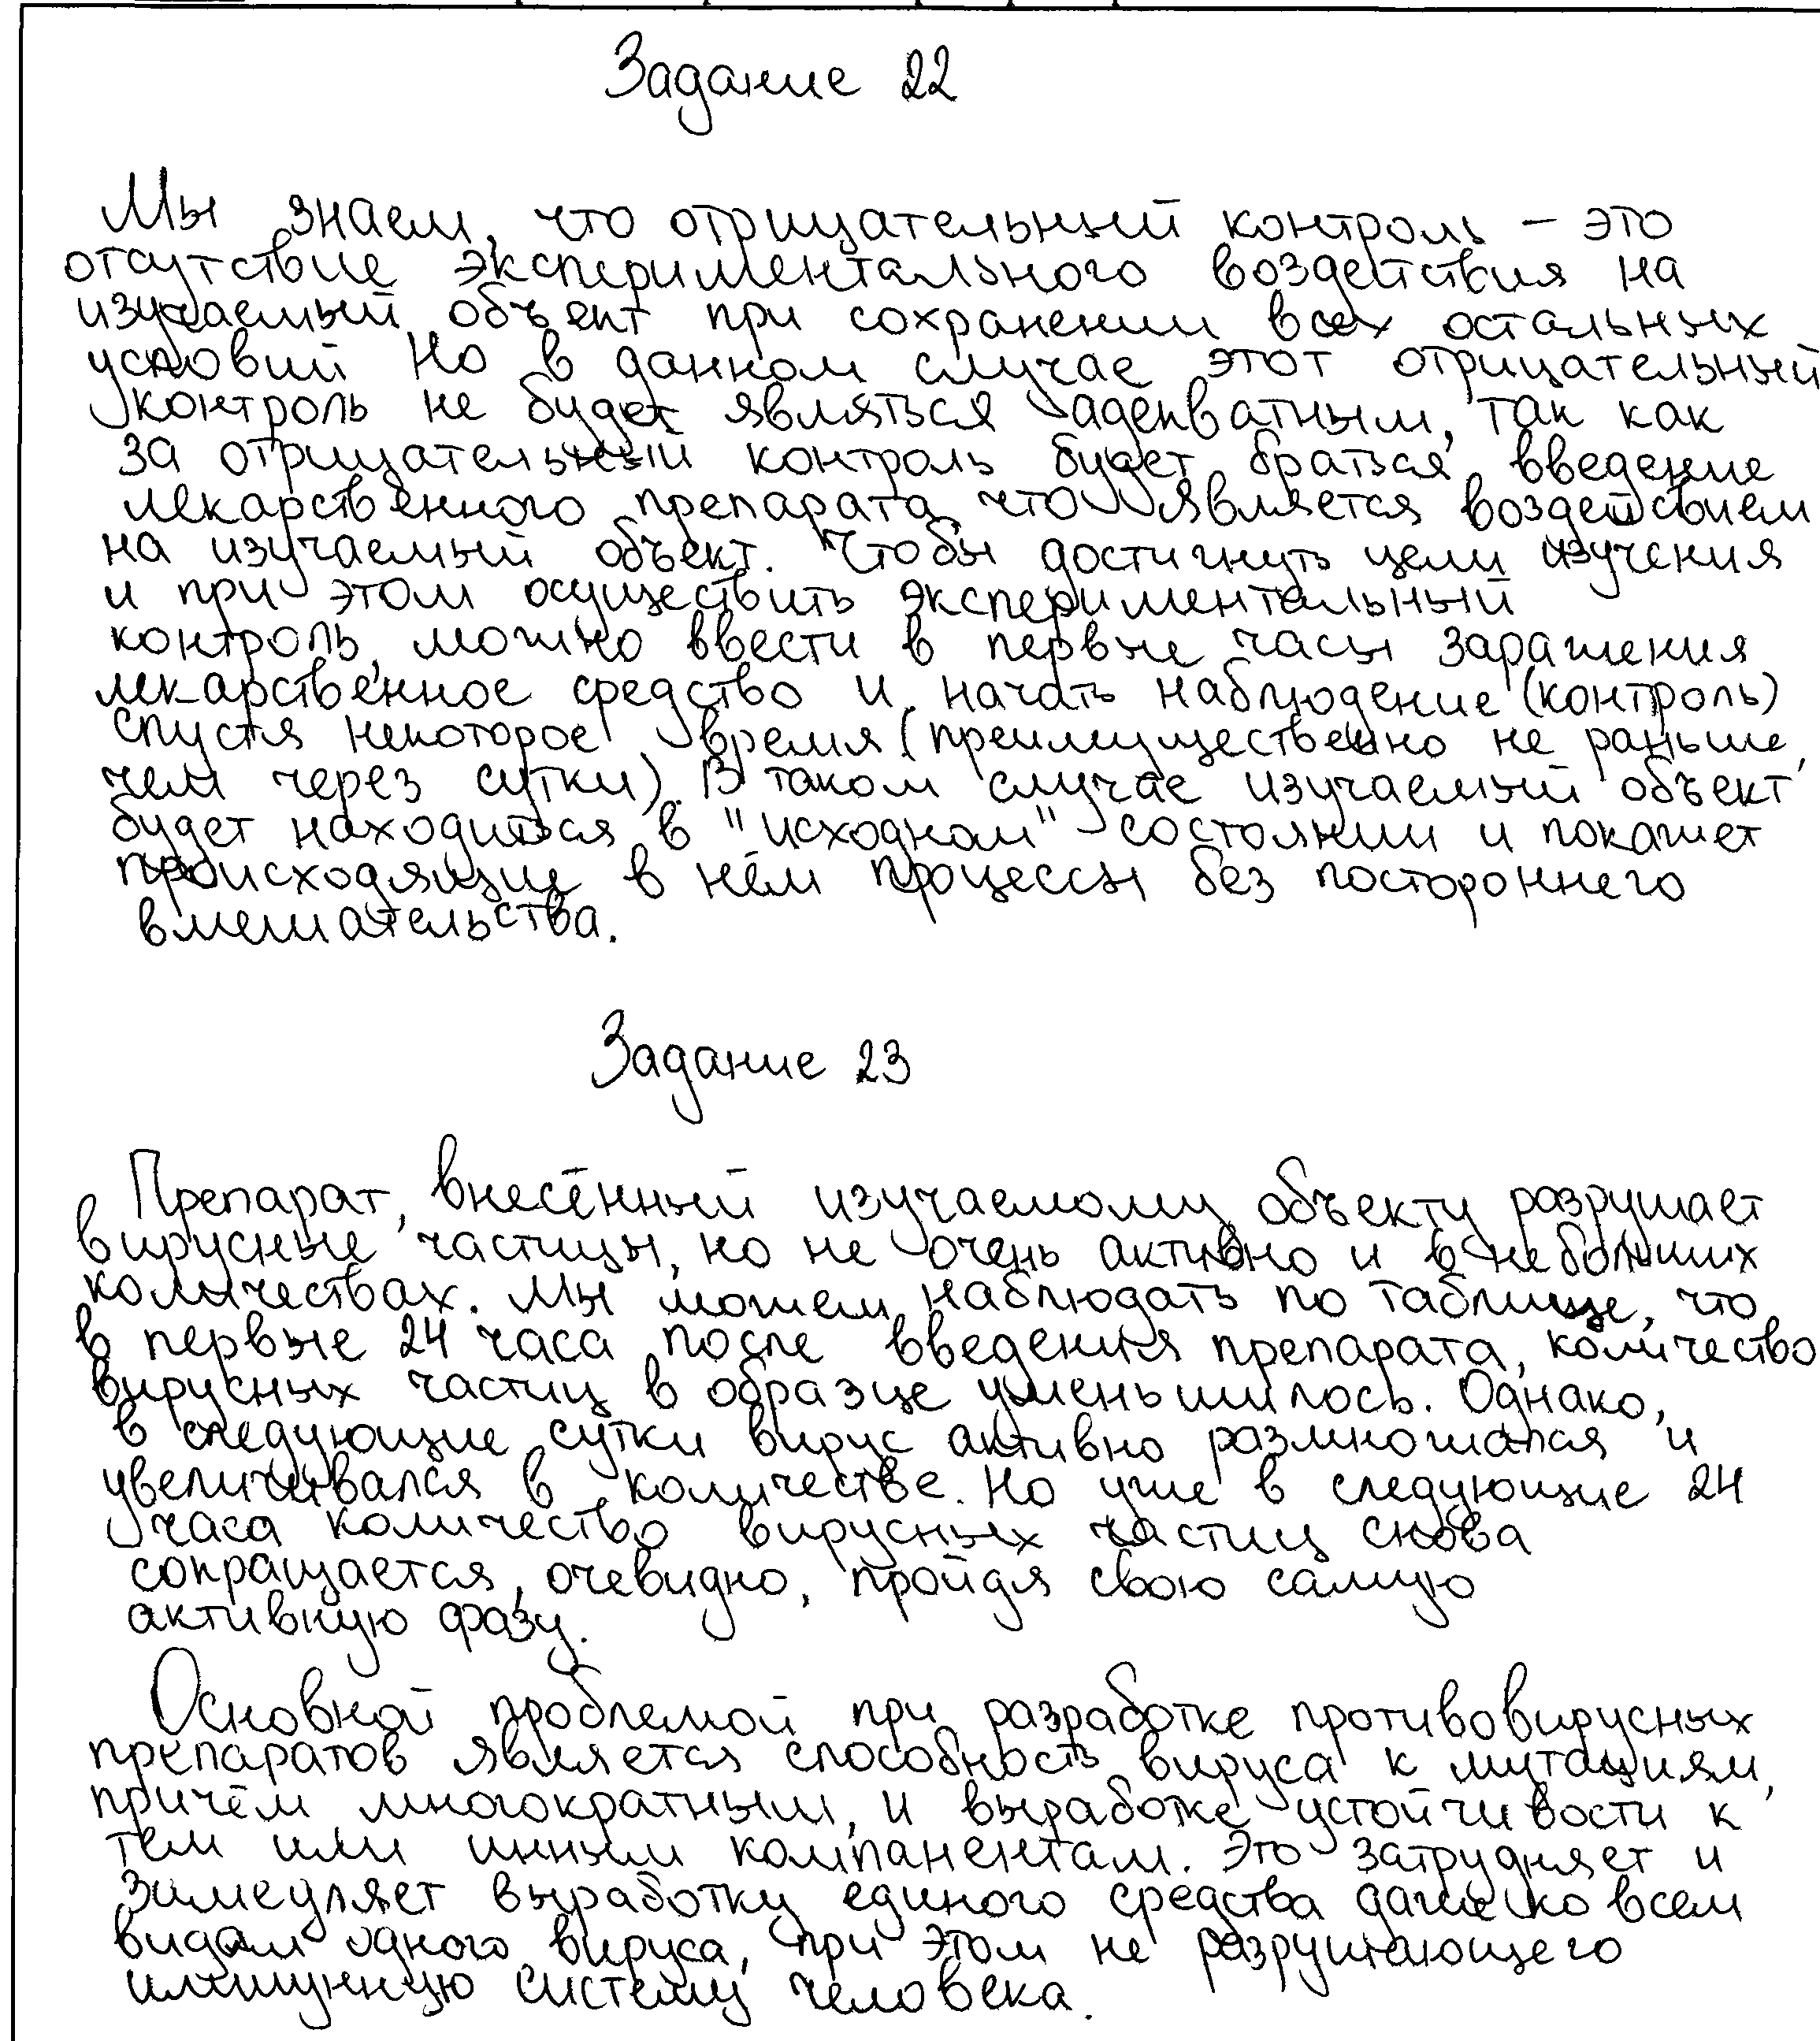 Задание 22
Мы знаем, что отрицательный контроль – это
отсутствие экспериментального воздействия на
изучаемый объект при сохранении всех остальных
условий Но в данном случае этот отрицательный
контроль не будет являться адекватным, так как
за отрицательный контроль будет браться введение
лекарственного препарата, что является воздействием
на изучаемый объект. Чтобы достигнуть цели изучения
и при этом осуществить экспериментальный
контроль, можно ввести в первые часы заражения
лекарственное средство и начать наблюдение (контроль)
спустя некоторое время (преимущественно не раньше,
чем через сутки). В таком случае изучаемый объект
будет находиться в "исходном" состоянии и покажет
происходящие в нём процессы без постороннего
вмешательства.
Задание 23
Препарат, внесённый изучаемому объекту разрушает
вирусные частицы, но не очень активно и в небольших
количествах. Мы можем наблюдать по таблице, что
в первые 24 часа после введения препарата, количество
вирусных частиц в образце уменьшилось. Однако,
в следующие сутки вирус активно размножался и
увеличивался в количестве. Но уже в следующие 24
часа количество вирусных частиц снова
сокращается, очевидно, пройдя свою самую
активную фазу.
Основной проблемой при разработке противовирусных
препаратов является способность вируса к мутациям,
причём многократным, и выработке устойчивости к
тем или инным компанентам. Это затрудняет и
замедляет выработку единого средства даже ко всем
видам одного вируса, при этом не разрушающего
иммунную систему человека.